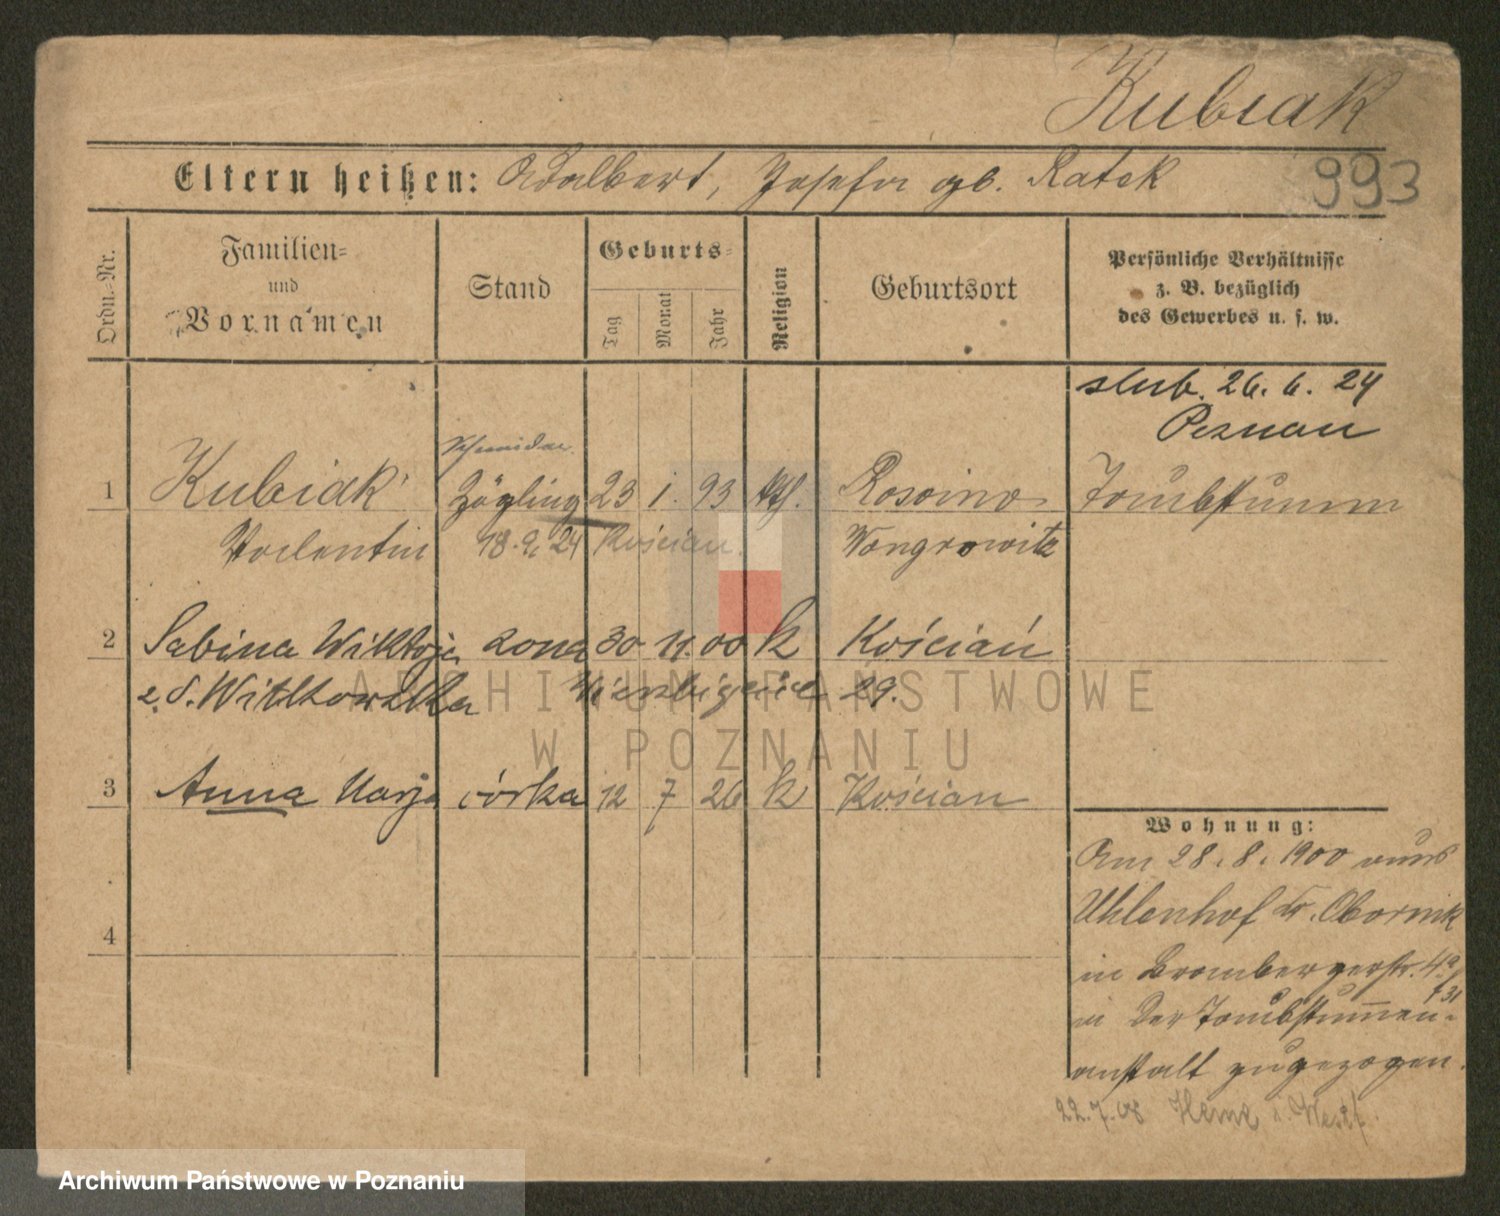 Kubiak
993
Eltern heißen: Adalbert, Josefa gb. Ratek
Ordn.-Nr.
Familien-
und
Vornamen
Stand
Geburts-
Tag
Monat
Jahr
Religion
Geburtsort
Persönliche Verhältnisse
z. B. bezüglich
des Gewerbes u. s. w.
ślub. 26. 6. 24
Poznań
Schneider
1 Kubiak Zögling 23 1. 93 kth. Rosoino Taubstumm
Valentin 18.9.24 Kościan. Wongrowitz
2 Sabina Wiktorja żona 30 11. 00 k Kościań
z d. Witkowska 29.
3 Anna Marja córka 12 7 26 k Kościan
4
Wohnung:
Am 28. 8. 1900 aus
Uhlenhof Kr. Obornik
in Brombergerstr. 4a/
731
in der Taubstummen-
anstalt zugezogen.
22.7.08 Herne i. Westf.
ARCHIWUM PAŃSTWOWE
W POZNANIU
Archiwum Państwowe w Poznaniu